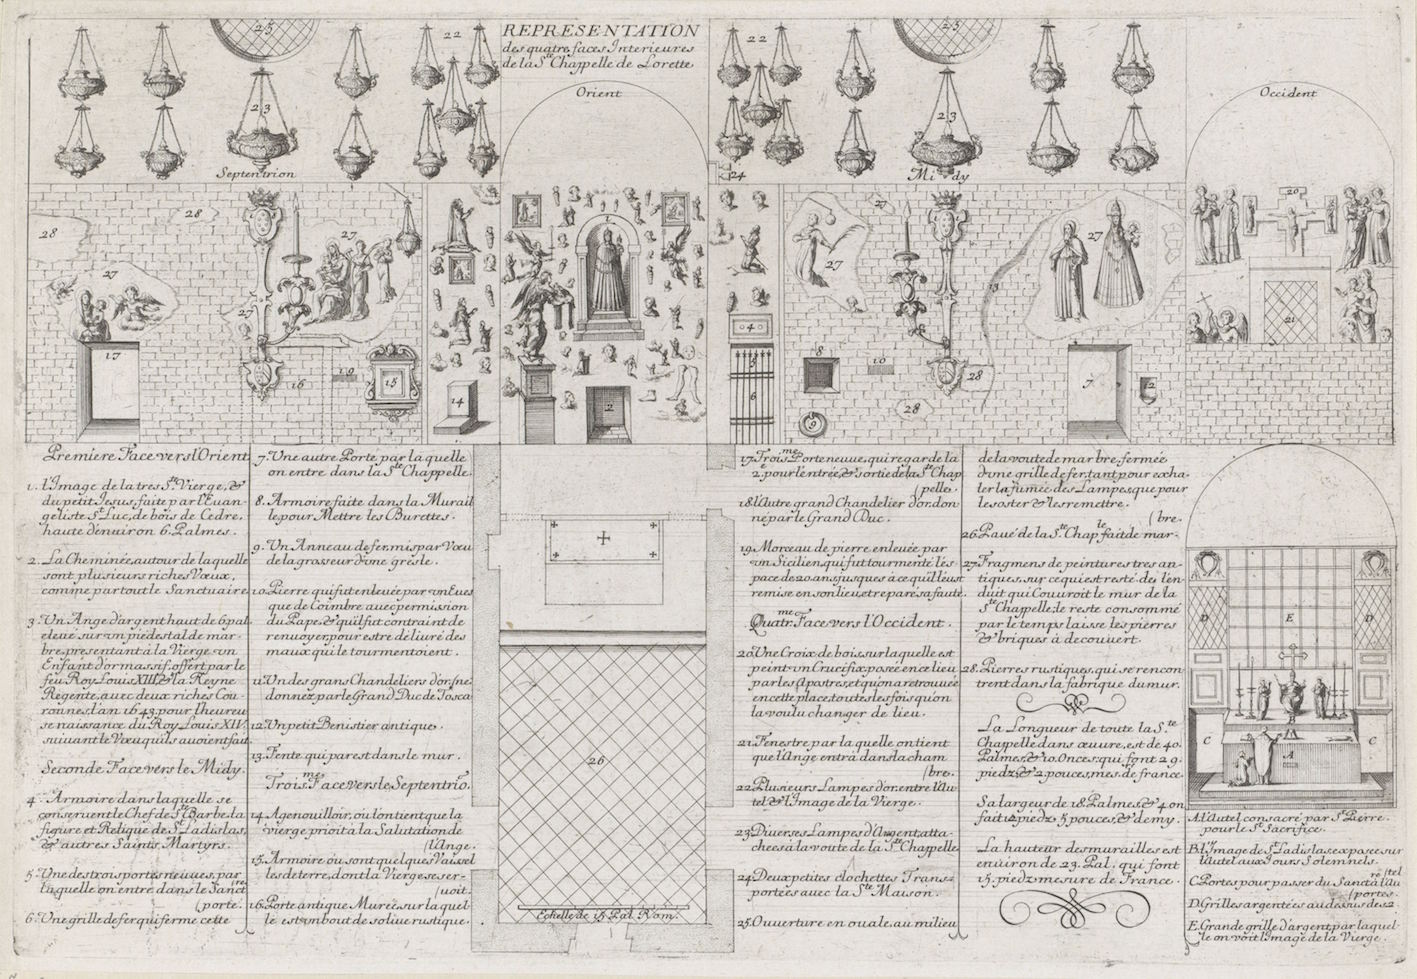 REPRESENTATION
des quatre faces Interieures
de la Ste Chappelle de Lorette
25
22
23
Septentrion
Orient
22
25
23
24
Mi dy
2
Occident
28
28
27
17
27
27
16
19
15
14
1
3
2
4
5
6
27
27
8
10
9
28
28
13
27
7
12
20
21
Premiere Face vers l'Orient
1. l'Image de la tres Ste Vierge, &
du petit Jesus, faite par l'Euan-
geliste St Luc, de bois de Cedre,
haute d'enuiron 6. Palmes.
2. La Cheminée, autour de laquelle
sont plusieurs riches Vœux,
comme par tout le Sanctuaire
3. Un Ange d'argent haut de 6. pal.
eleué sur un piedestal de mar-
bre, presentant à la Vierge un
Enfant d'or massif, offert par le
feu Roy Louis XIII, & la Reyne
Regente, auec deux riches Cou-
ronnes, l'an 1643, pour l'heureu
se naissance du Roy Louis XIV.
suiuant le Vœu qu'ils auoient fait.
Seconde Face vers le Midy.
4. Armoire dans laquelle se
conseruent le Chef de Ste Barbe, la
figure et Relique de St Ladislas,
& autres Saints Martyrs.
5. Une des trois portes neuues, par
laquelle on entre dans le Sanctre
(porte.
6. Une grille de fer qui ferme cette
7. Une autre Porte par laquelle
on entre dans la Ste Chappelle
8. Armoire faite dans la Murail
le pour Mettre les Burettes.
9. Un Anneau de fer, mis par Vœu
de la grosseur d'une gresle.
10. Pierre qui fut enleuée par un Eues
que de Coimbre auec permission
du Pape, & qu'il fut contraint de
renuoyer, pour estre déliuré des
maux qui le tourmentoient.
11. Un des grans Chandeliers d'or fin
donnez par le Grand Duc de Tosca
12. Un petit Benistier antique.
13. Fente qui parest dans le mur.
Troisme Face vers le Septentrio.
14. Agenouilloir, où l'on tient que la
vierge prioit à la Salutation de
(l'Ange.
15. Armoire où sont quelques Vaissel
les de terre, dont la Vierge se ser-
(uoit.
16. Porte antique Murée sur laquel
le est un bout de soliue rustique.
26
Echelle de 15 Pal. Rom.
17. Troisme Porte neuue, qui regarde la
2e pour l'entrée, & sortie de la Ste Chap
(pelle.
18. l'Autre grand Chandelier d'or, don
né par le Grand Duc.
19. Morceau de pierre enleuée par
un Sicilien, qui fut tourmenté l'es
pace de 20 ans, jusques à ce qu'il l'eust
remise en son lieu, et reparé sa faute.
Quatrme Face vers l'Occident.
20. Une Croix de bois, sur laquelle est
peint un Crucifix posée en ce lieu
par les Apostres, et qu'on a retrouuée
en cette place, toutes les fois qu'on
l'a voulu changer de lieu.
21. Fenestre par laquelle on tient
que l'Ange entra dans la cham
(bre.
22. Plusieurs Lampes d'or, entre l'Au
tel, & l'Image de la Vierge.
23. Diuerses Lampes d'Argent atta-
chées à la voute de la Ste Chappelle
24. Deux petites clochettes Trans-
portées auec la Ste Maison.
25. Ouuerture en ouale, au milieu
de la voute de marbre, fermée
d'une grille de fer, tant pour exha-
ler la fumée des Lampes, que pour
les oster & les remettre.
(bre.
26. Paué de la Ste Chaple fait de mar-
27. Fragmens de peintures tres an-
tiques, sur ce qui est resté de l'en
duit qui Couuroit le mur de la
Ste Chappelle; le reste consommé
par le temps laisse les pierres
& briques à decouuert.
28. Pierres rustiques, qui se rencon
trent dans la fabrique du mur.
La Longueur de toute la Ste
Chappelle dans œuure, est de 40.
Palmes, & 10. Onces, qui font 29.
piedz, & 2 pouces, mes. de france
Sa largeur de 18. Palmes, & 4 on
fait 12 piedz 5 pouces, & demy.
La hauteur des murailles est
enuiron de 23. Pal. qui font
15. piedz mesure de France.
D
E
D
C
A
C
A. l'Autel consacré par St Pierre.
pour le St Sacrifice.
B. l'Image de St Ladislas, exposée sur
l'autel aux Jours Solemnels.
C. Portes pour passer du Sanctre à l'Au
(tel
D. Grilles argentées au dessus des 2.
(portes.
E. Grande grille d'argent, par laquel-
le on voit l'Image de la Vierge.